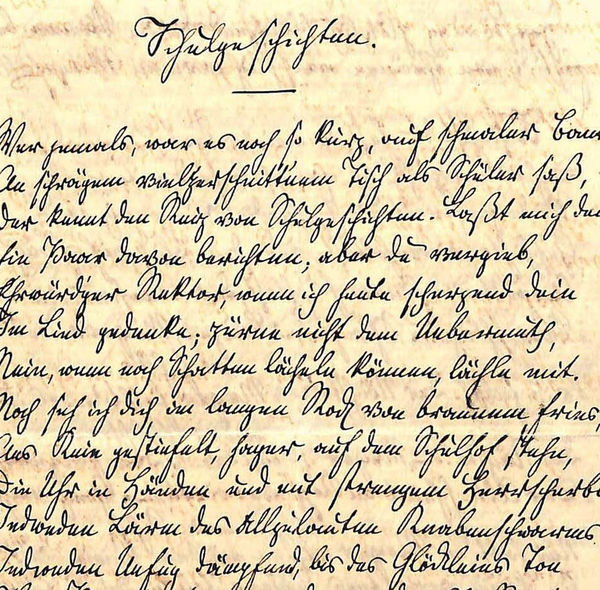 Schulgeschichten.
Wer jemals, war es noch so kurz, auf schmaler Bank
An schrägem vielzerschnittnem Tisch als Schüler saß,
Der kennt den Reiz von Schulgeschichten. Laßt mich denn
Ein Paar davon berichten; aber du vergieb,
Ehrwürdger Rektor, wenn ich heute scherzend dein
Im Lied gedenke; zürne nicht dem Uebermuth,
Nein, wenn noch Schatten lächeln können, lächle mit.
Noch seh ich dich im langen Rock von braunem Fries,
Ans Knie gestiefelt, hager, auf dem Schulhof stehn,
Die Uhr in Händen und mit strengem
Jedweden Lärm des allzulauten Knabenschwarms,
Jedweden Unfug dämpfend, bis des Glöckleins Ton